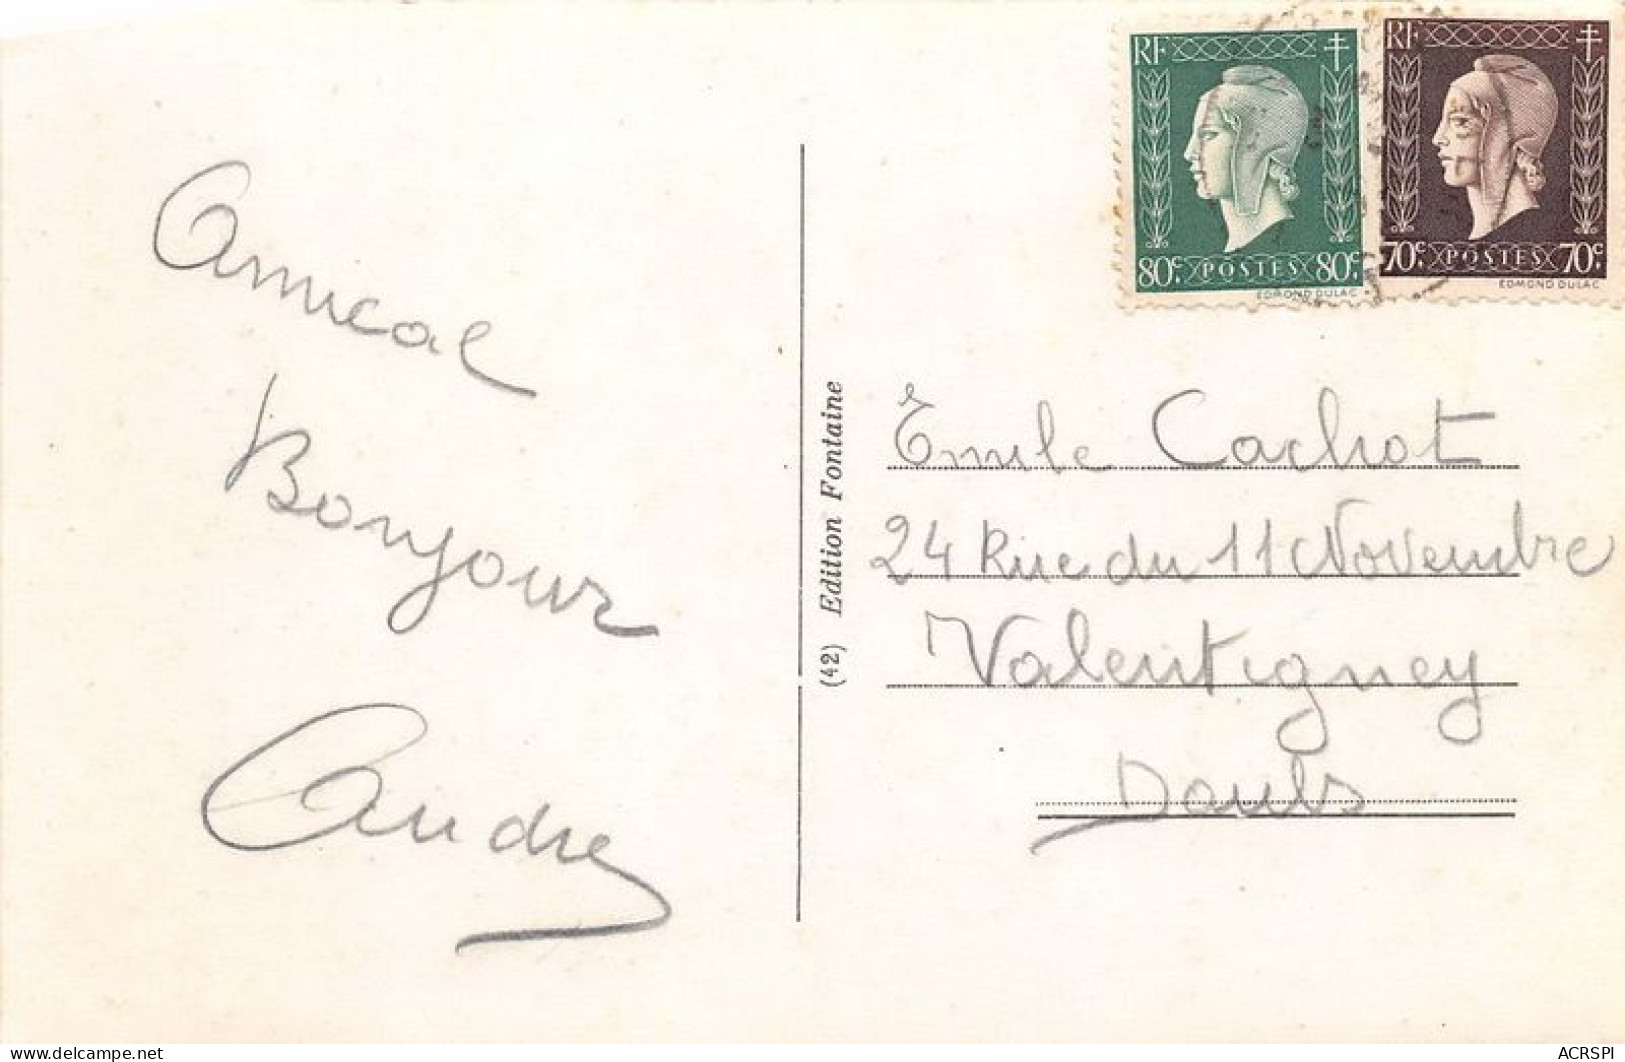 Amical
Bonjour
André
(42) Edition Fontaine
RF
80c.
POSTES
80c.
EDMOND DULAC
RF
70c.
POSTES
70c.
EDMOND DULAC
Émile Cachot
24 Rue du 11 Novembre
Valentigney
Doubs
www.delcampe.net
ACRSPI